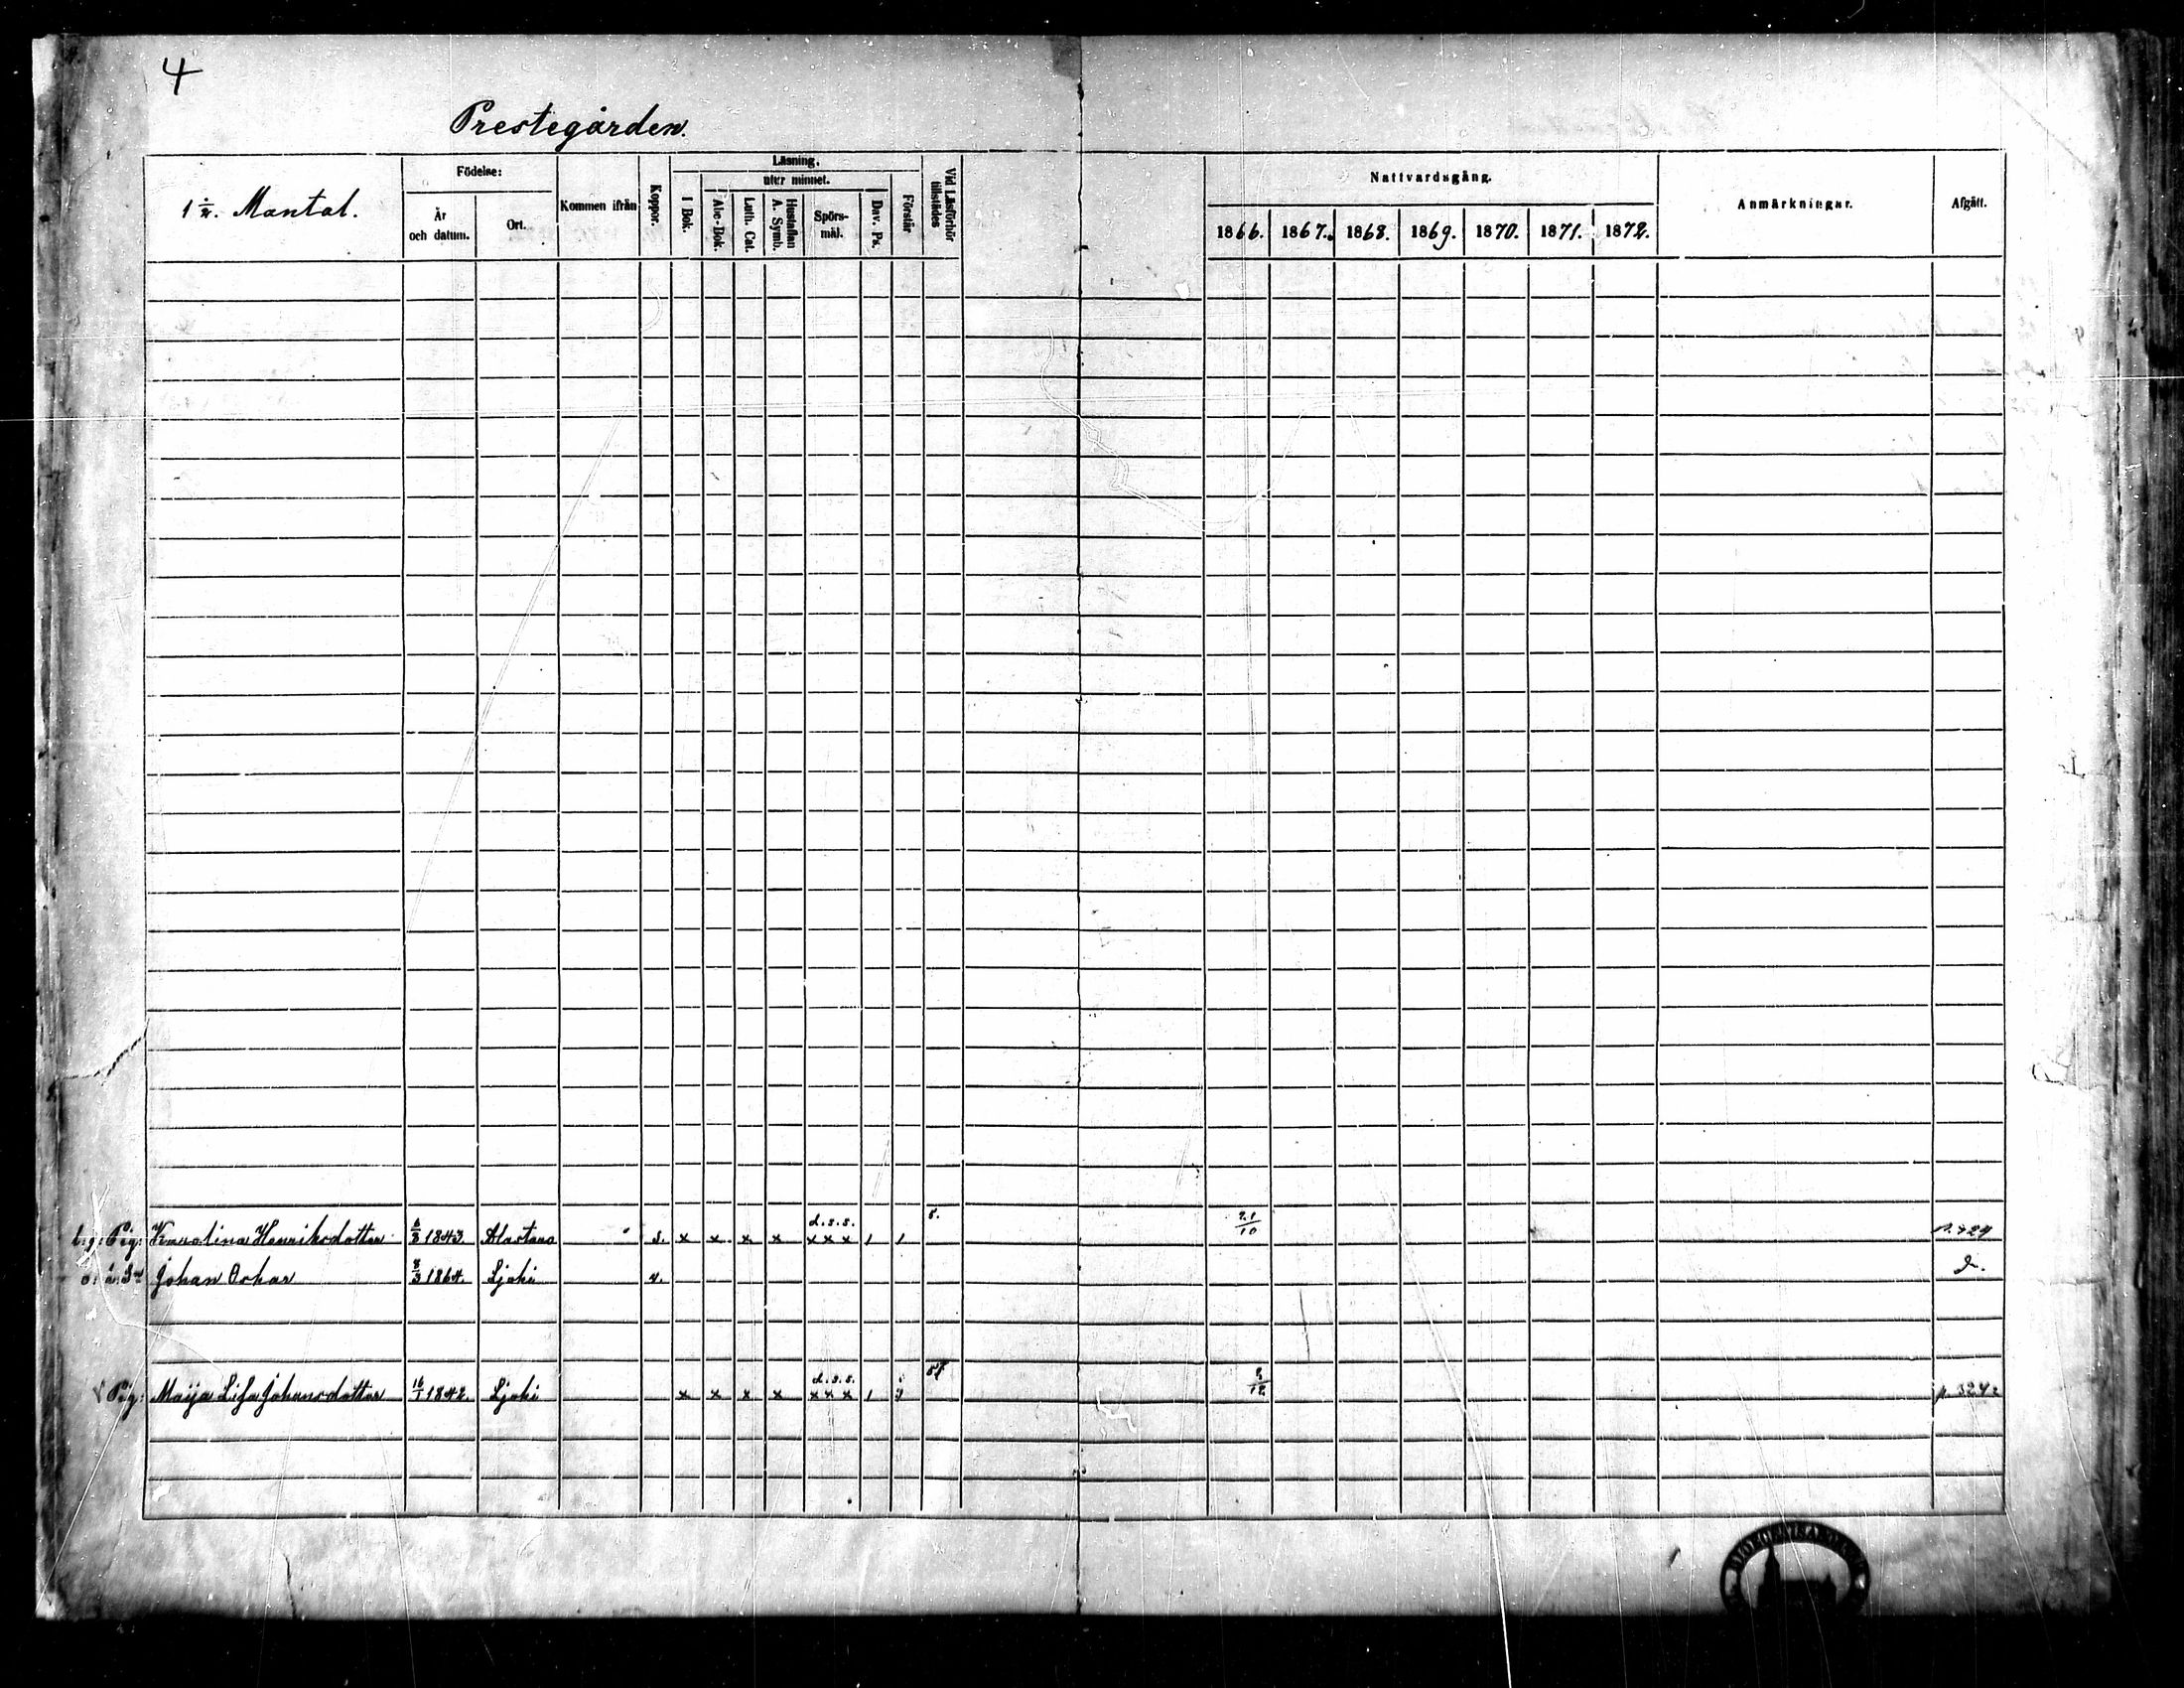 4
Prestegården.
1 ½. Mantal.
Födelse:
År och datum.
Ort.
Kommen ifrån
Koppor.
Läsning.
utur minnet.
I Bok.
Abc-Bok.
Luth. Cat.
Hustaflan A. Symb.
Spörs-mål.
Dav. Ps.
Förstår
Vid Läsförhör tillstädes
Nattvardsgång.
1866. 1867. 1868. 1869. 1870. 1871. 1872.
Anmärkningar.
Afgått.
Pig: Karolina Henriksdotter 6/8 1843. Alastaro s. x x x x d.s.s. x x x 1 1 21/10
Johan Oskar 8/3 1864. Ljoki v. D.
Pig: Maija Lisa Johansdotter 16/1 1842. Ljoki x x x x d.s.s. x x x 1 p. 324.